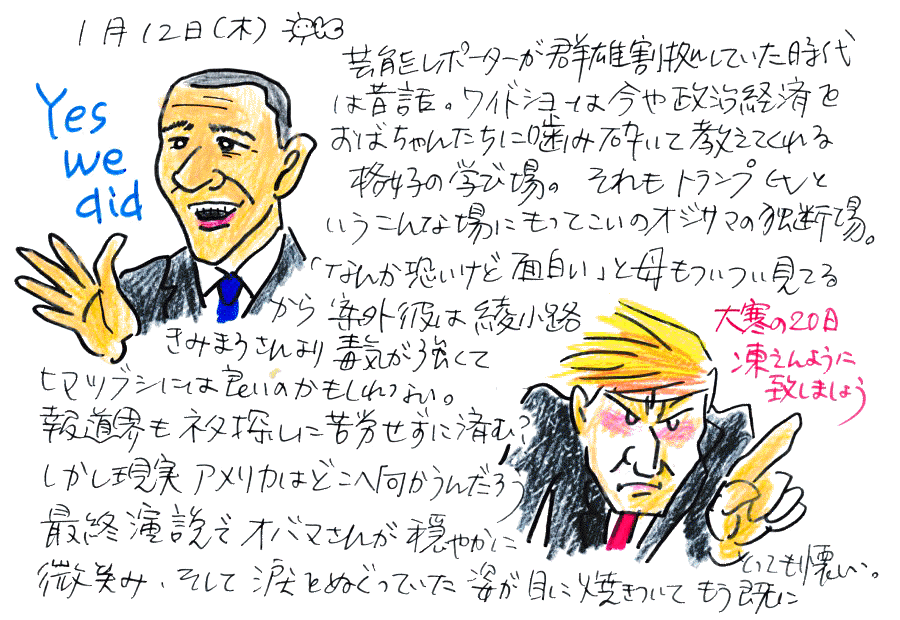 1月12日(木)
Yes
we
did
芸能レポーターが群雄割拠していた時代
は昔話。ワイドショーは今や政治経済を
おばちゃんたちに噛み砕いて教えてくれる
格好の学び場。それもトランプ氏と
いうこんな場にもってこいのオジサマの独断場。
「なんか恐いけど面白い」と母もついつい見てる
から案外彼は綾小路
きみまろさんより毒気が強くて
ヒマツブシには良いのかもしれない。
報道界もネタ探しに苦労せずに済む?
しかし現実アメリカはどこへ向かうんだろう
最終演説でオバマさんが穏やかに
微笑み、そして涙をぬぐっていた姿が目に焼きついてもう既に
とっても懐しい。
大寒の20日
凍えんように
致しましょう